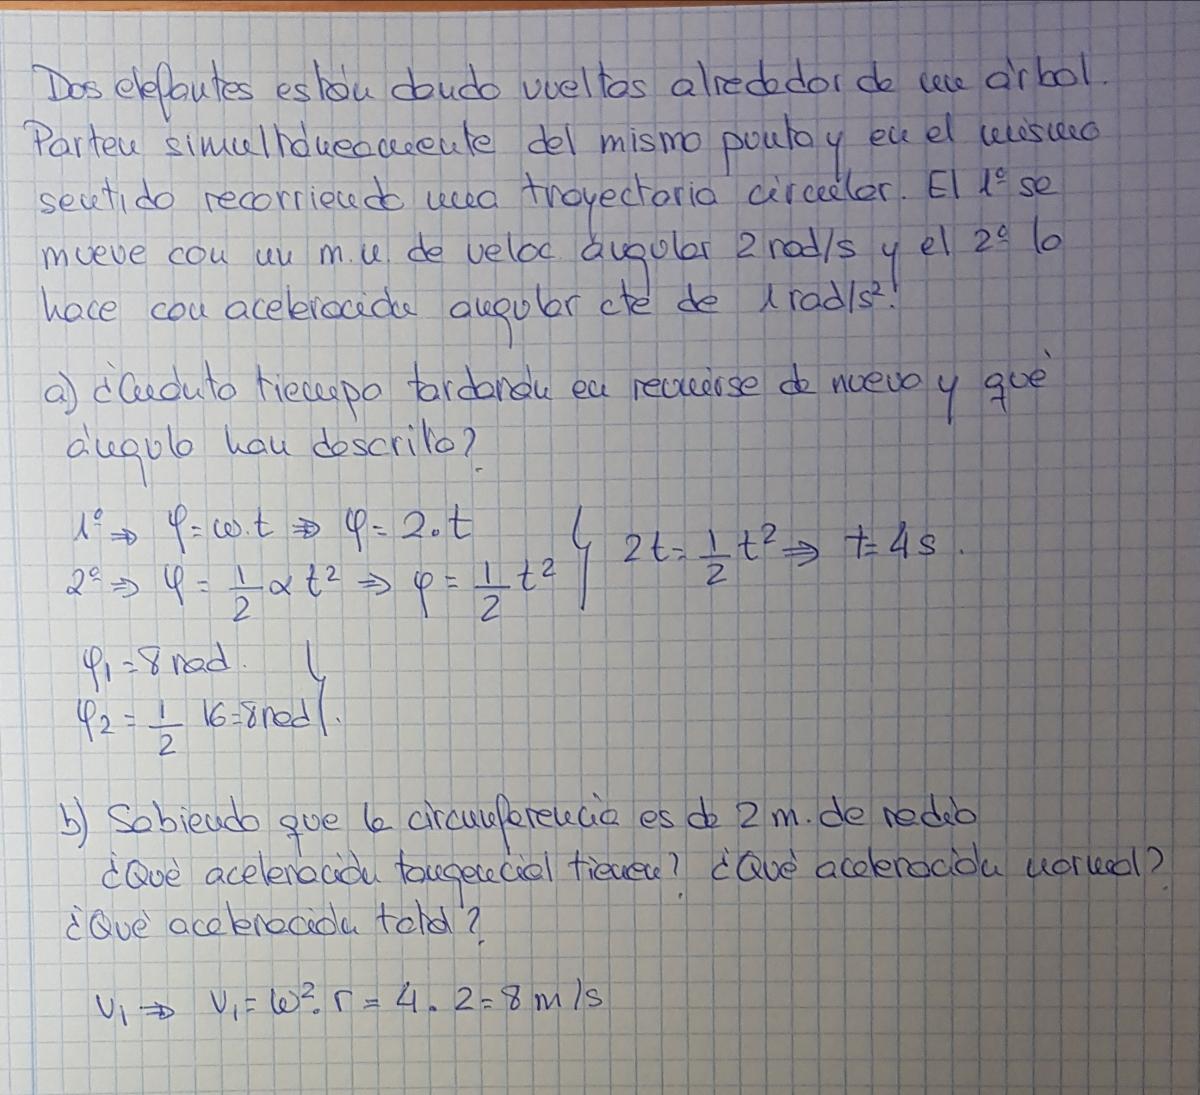 Dos elefantes están dando vueltas alrededor de un árbol.
Parten simultáneamente del mismo punto y en el mismo
sentido recorriendo una trayectoria circular. El 1º se
mueve con un m.u. de veloc. ángular 2 rad/s y el 2º lo
hace con aceleración angular cte de 1 rad/s².
a) ¿Cuánto tiempo tardarán en reunirse de nuevo y qué
ángulo han descrito?
1º ⇒ φ = ω.t ⇒ φ = 2.t
2º ⇒ φ = 1/2 α t² ⇒ φ = 1/2 t² } 2t = 1/2 t² ⇒ t = 4s.
φ₁ = 8 rad.
φ₂ = 1/2 16 = 8 rad }.
b) Sabiendo que la circunferencia es de 2 m. de radio
¿Qué aceleración tangencial tienen? ¿Qué aceleración normal?
¿Qué aceleración total?
V₁ ⇒ V₁ = ω².r = 4.2 = 8 m/s